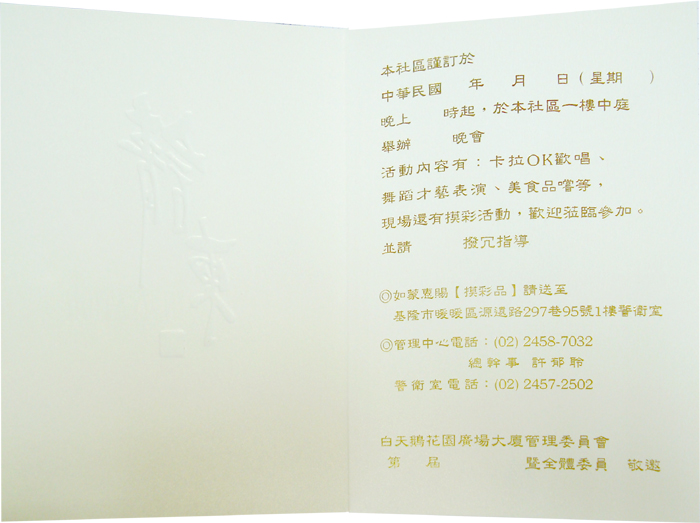 本社區謹訂於
中華民國 年 月 日（星期 ）
晚上 時起，於本社區一樓中庭
舉辦 晚會
活動內容有：卡拉OK歡唱、
舞蹈才藝表演、美食品嚐等，
現場還有摸彩活動，歡迎蒞臨參加。
並請 撥冗指導
◎如蒙惠賜【摸彩品】請送至
基隆市暖暖區源遠路297巷95號1樓警衛室
◎管理中心電話：(02) 2458-7032
總幹事 許郁聆
警衛室電話：(02) 2457-2502
白天鵝花園廣場大廈管理委員會
第 屆 暨全體委員 敬邀